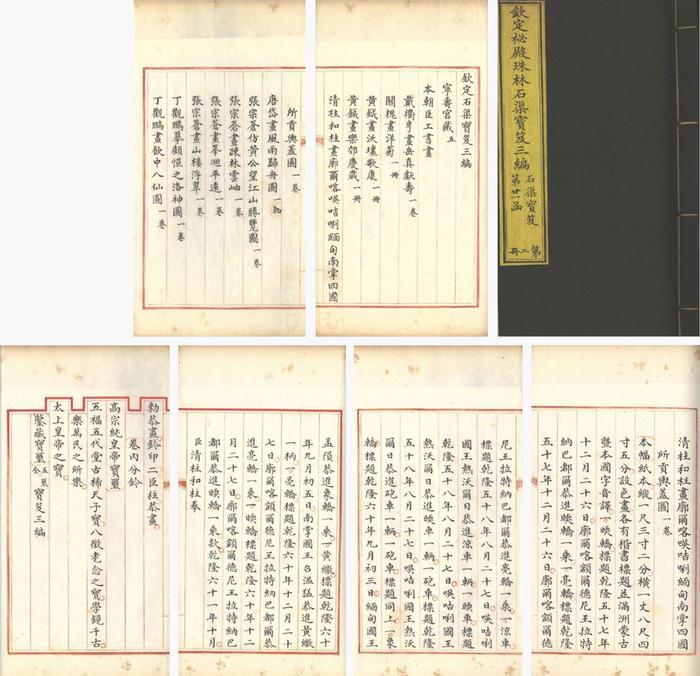 欽定秘殿珠林石渠寶笈三編
石渠寶笈
第廿一函
第二冊
欽定石渠寶笈三編
寧壽宮藏五
本朝臣工書畫
戴衢亨畫岳真獻壽一卷
關槐畫洋菊一冊
黃鉞畫沃壤歌康一冊
黃鉞畫樂郊慶歲一冊
清柱和柱畫廓爾喀𠸄咭唎緬甸南掌四國
所貢輿蓋圖一卷
唐岱畫風雨歸舟圖一軸
張宗蒼仿黃公望江山勝覽圖一卷
張宗蒼畫疎林雲岫一卷
張宗蒼畫峯迴平遠一卷
張宗蒼畫山樓浮翠一卷
丁觀鵬摹顧愷之洛神圖一卷
丁觀鵬畫飲中八仙圖一卷
清柱和柱畫廓爾喀𠸄咭唎緬甸南掌四國
所貢輿蓋圖一卷
本幅紙本縱一尺三寸二分橫一丈八尺四
寸五分設色畫各有楷書標題並滿洲蒙古
暨本國字音譯一暖轎標題乾隆五十七年
十二月二十六日廓爾喀額爾德尼王拉特
納巴都爾恭進暖轎一乘一亮轎標題乾隆
五十七年十二月二十六日廓爾喀額爾德
尼王拉特納巴都爾恭進亮轎一乘一涼車
標題乾隆五十八年八月二十七日𠸄咭唎
國王熱沃爾日恭進涼車一輛一暖車標題
乾隆五十八年八月二十七日𠸄咭唎國王
熱沃爾日恭進暖車一輛一砲車標題乾隆
五十八年八月二十七日𠸄咭唎國王熱沃
爾日恭進砲車一輛一砲車標題同上一象
轎標題乾隆六十年九月初三日緬甸國王
孟隕恭進象轎一乘一黃繖標題乾隆六十
年九月初五日南掌國王召溫猛恭進黃繖
一柄一亮轎標題乾隆六十年十二月二十
七日廓爾喀額爾德尼王拉特納巴都爾恭
進亮轎一乘一暖轎標題乾隆六十年十二
月二十七日廓爾喀額爾德尼王拉特納巴
都爾恭進暖轎一乘款乾隆六十一年十月
臣清柱和柱奉
勅恭畫鈐印二臣柱恭畫
卷內分鈐
高宗純皇帝寶璽
五福五代堂古稀天子寶八徵耄念之寶學鏡千古
樂萬民之所樂
太上皇帝之寶
鑒藏寶璽五璽全寶笈三編